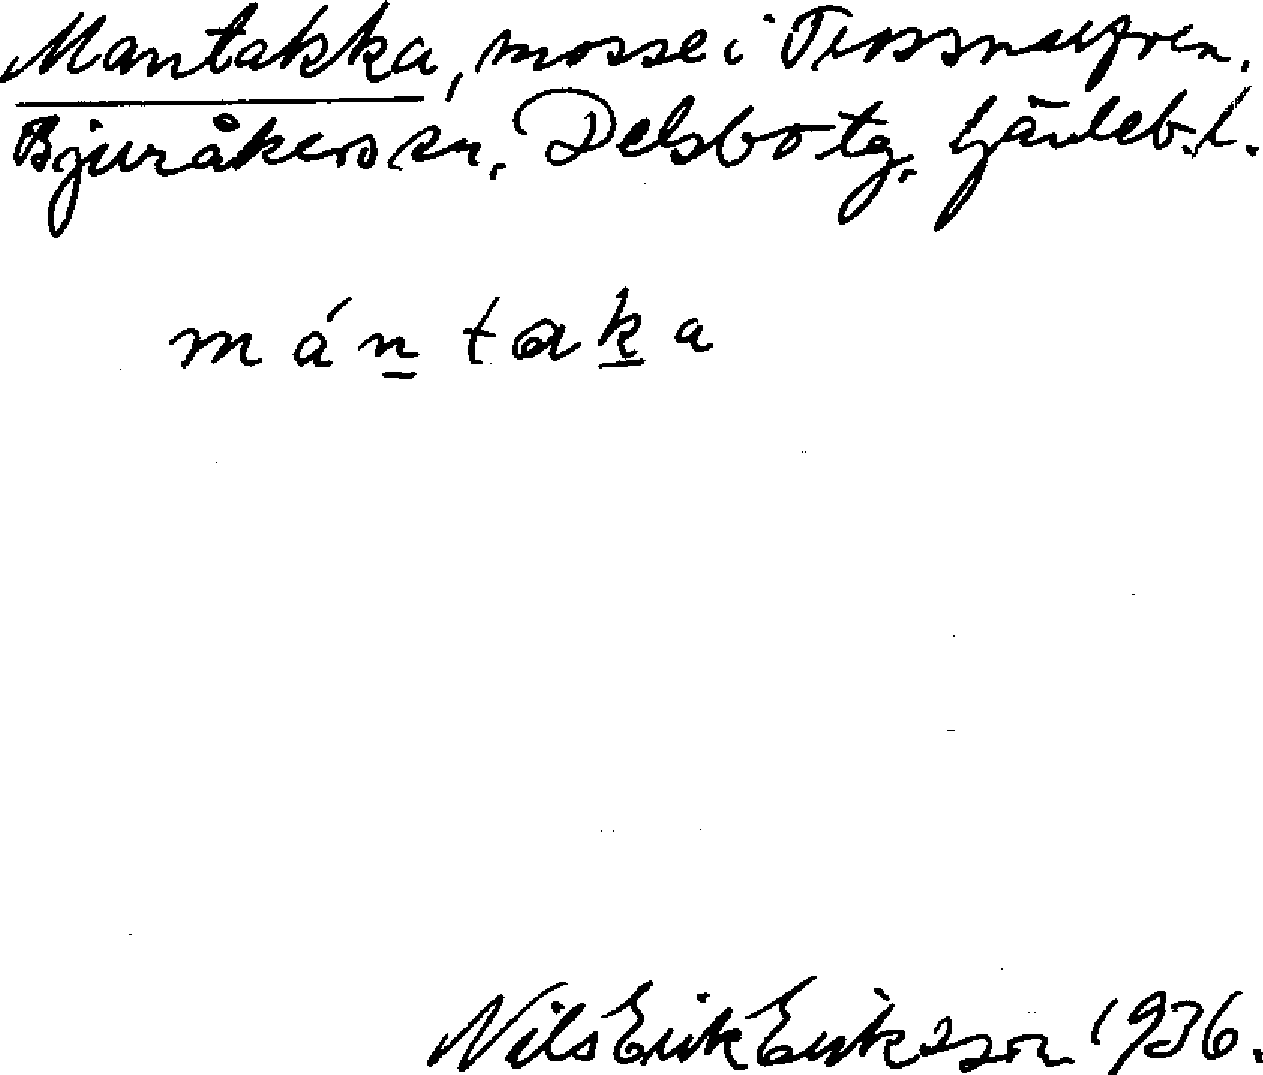 Mantakka, mosse i
Bjuråkers sn. Delsbo tg. Gävleb. l.
mántaka
Nils Erik Eriksson 1936.